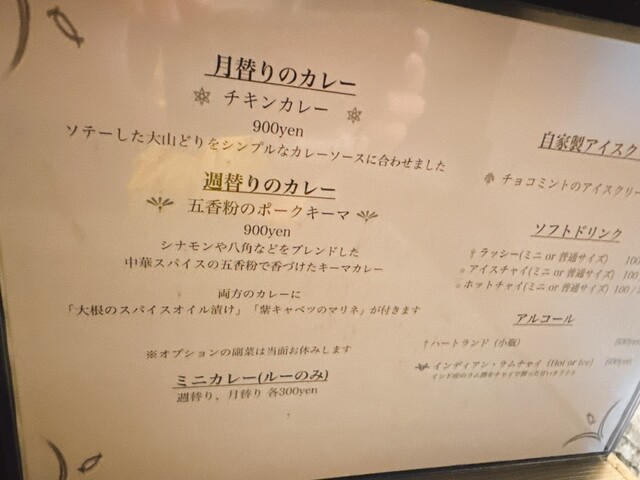 月替りのカレー
チキンカレー
900yen
ソテーした大山どりをシンプルなカレーソースに合わせました
週替りのカレー
五香粉のポークキーマ
900yen
シナモンや八角などをブレンドした
中華スパイスの五香粉で香づけたキーマカレー
両方のカレーに
「大根のスパイスオイル漬け」「紫キャベツのマリネ」が付きます
※オプションの副菜は当面お休みします
ミニカレー(ルーのみ)
週替り、月替り 各300yen
自家製アイスク
チョコミントのアイスクリー
ソフトドリンク
ラッシー(ミニ or 普通サイズ) 100
アイスチャイ(ミニ or 普通サイズ) 100
ホットチャイ(ミニ or 普通サイズ) 100 /
アルコール
ハートランド (小瓶) 600yen
インディアン・ラムチャイ (Hot or Ice) 600yen